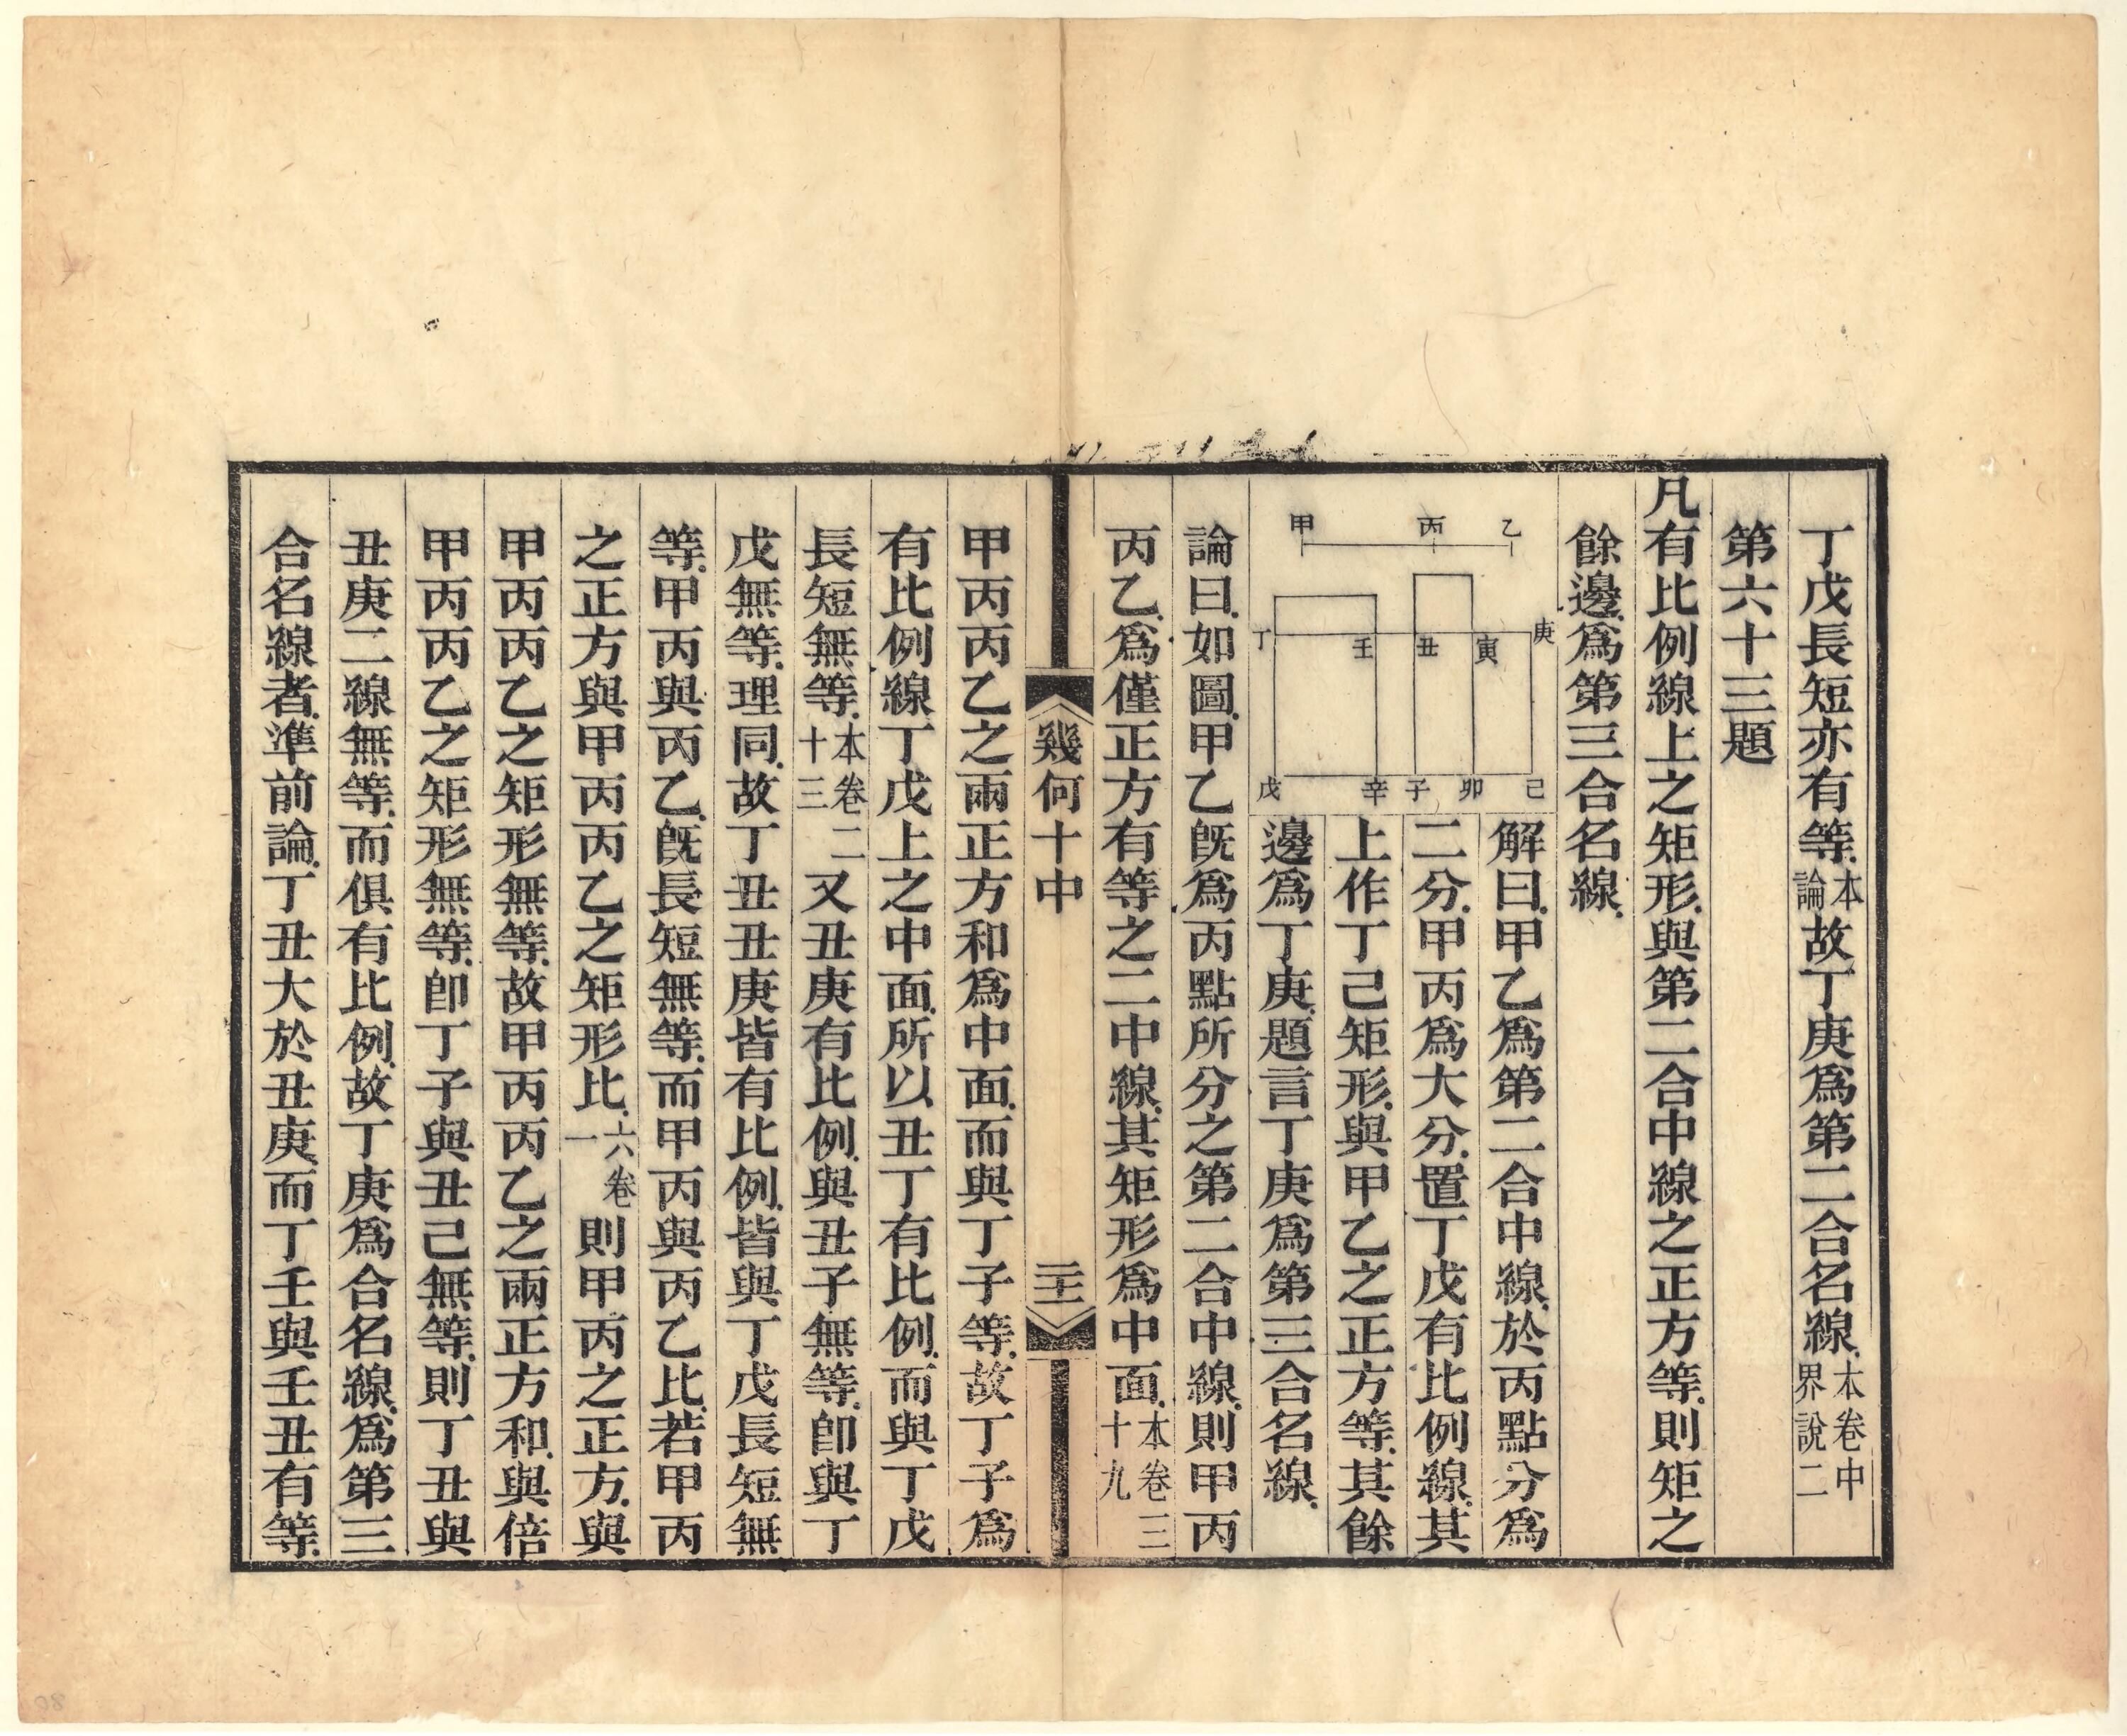 丁戊長短亦有等.本論故丁庚爲第二合名線.本卷中界說二
第六十三題
凡有比例線上之矩形.與第二合中線之正方等.則矩之
餘邊.爲第三合名線.
甲 丙 乙
丁 壬 丑 寅 庚
戊 辛 子 卯 己
解曰.甲乙爲第二合中線.於丙點分爲
二分.甲丙爲大分.置丁戊有比例線.其
上作丁己矩形.與甲乙之正方等.其餘
邊爲丁庚.題言丁庚爲第三合名線.
論曰.如圖.甲乙旣爲丙點所分之第二合中線.則甲丙
丙乙.爲僅正方有等之二中線.其矩形爲中面.本卷三十九
幾何十中
二十
甲丙丙乙之兩正方和爲中面.而與丁子等.故丁子爲
有比例線丁戊上之中面.所以丑丁有比例.而與丁戊
長短無等.本卷二十三又丑庚有比例.與丑子無等.卽與丁
戊無等.理同.故丁丑丑庚皆有比例.皆與丁戊長短無
等.甲丙與丙乙.旣長短無等.而甲丙與丙乙比.若甲丙
之正方與甲丙丙乙之矩形比.六卷一則甲丙之正方.與
甲丙丙乙之矩形無等.故甲丙丙乙之兩正方和.與倍
甲丙丙乙之矩形無等.卽丁子與丑己無等.則丁丑與
丑庚二線無等.而俱有比例.故丁庚爲合名線.爲第三
合名線者.準前論.丁丑大於丑庚.而丁壬與壬丑有等.